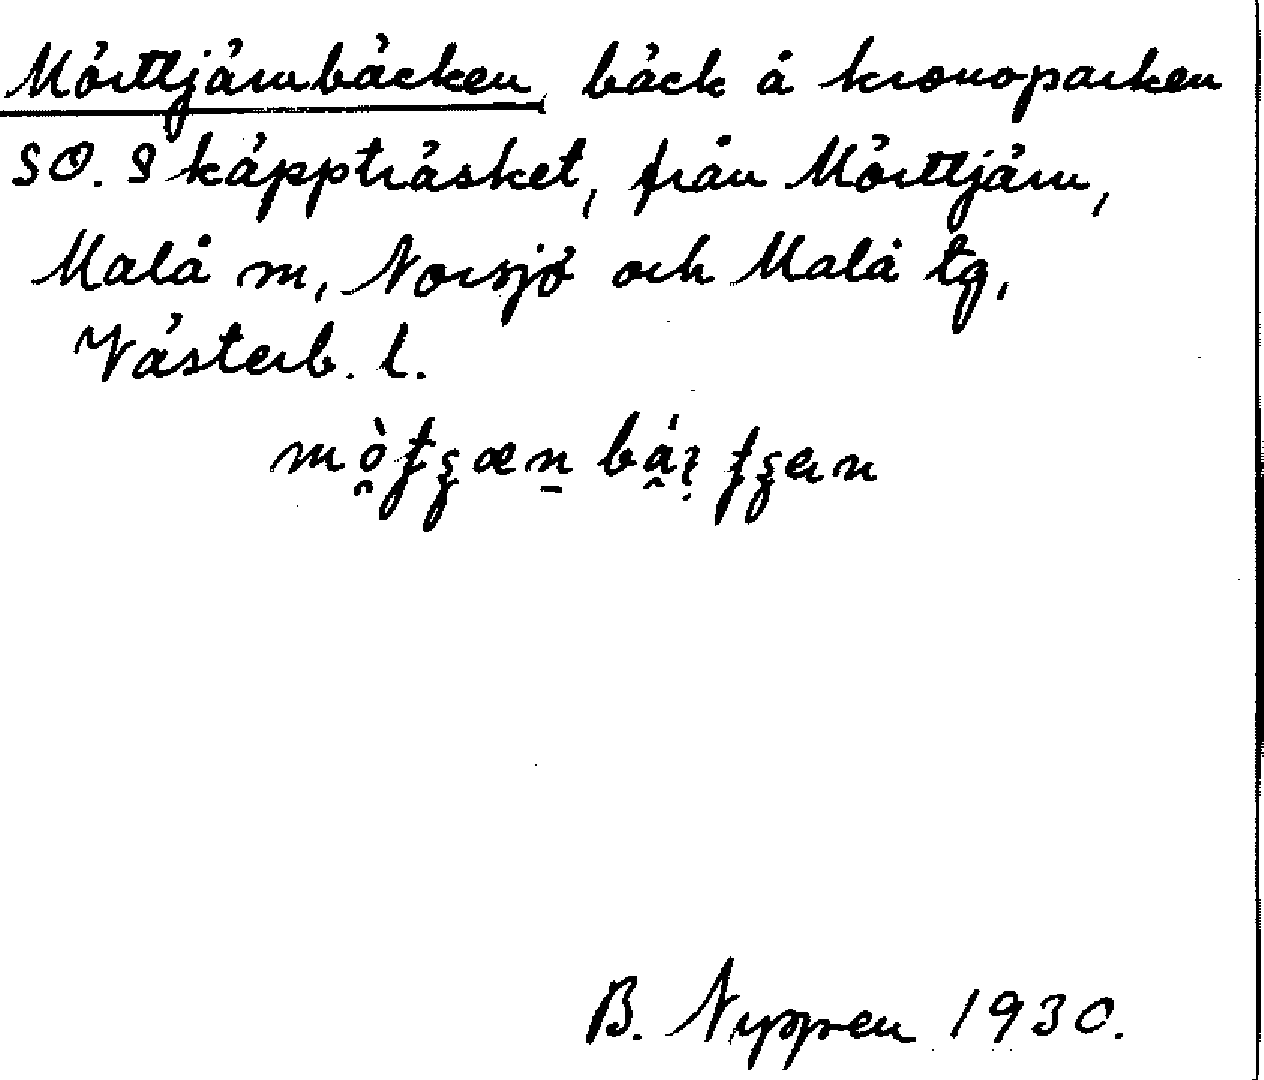 Mörttjärnbäcken, bäck å kronoparken
SO. Skäppträsket, från Mörttjärn,
Malå sn, Norsjö och Malå tg,
Västerb. l.
B. Nyppen 1930.